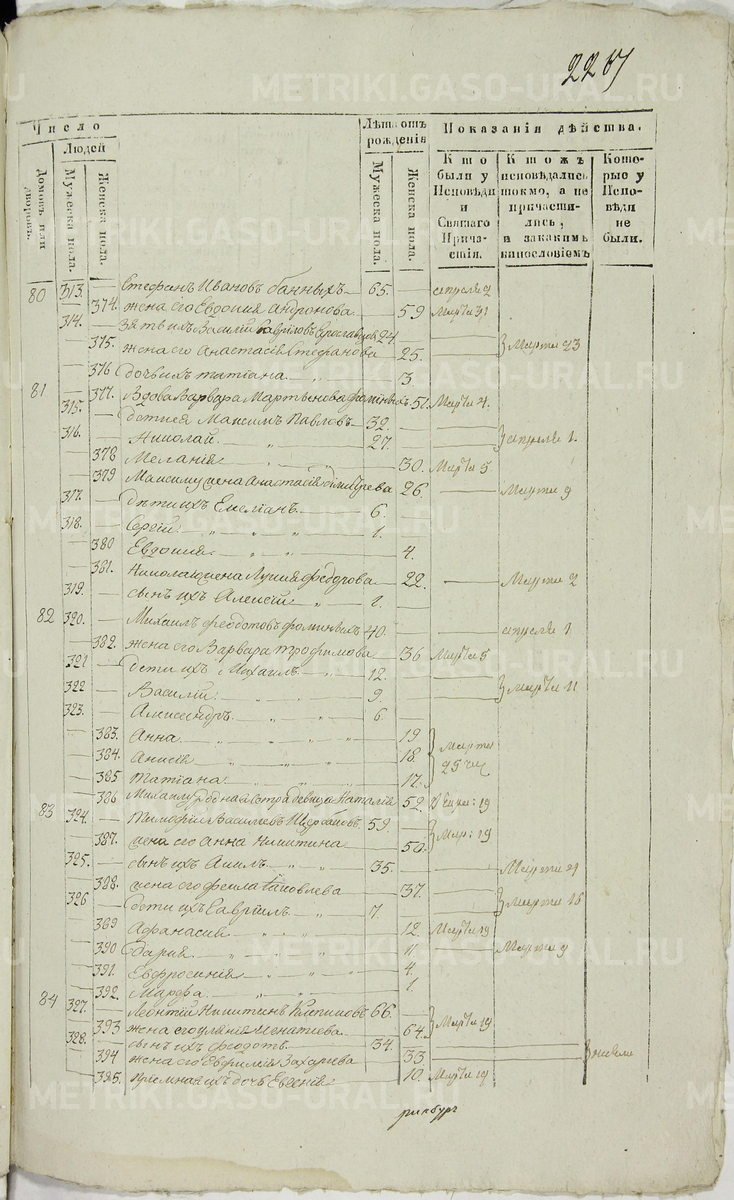 226
Число
Людей
Домовъ или дворовъ.
Мужеска пола.
Женска пола.
Лѣтъ отъ рожденія
Мужеска пола.
Женска пола.
Показанія дѣйства.
Кто были у Исповѣди и Святаго Причастія.
Кто жъ исповѣдались токмо, а не причастились, и за какимъ винословіемъ
Которые у Исповѣди не были.
80 313. Стефанъ Ивановъ банныхъ 65. апреля 2
374. жена его Евдокия Андронова 59 Марта 31
314. Зять ихъ Василій Гавриловъ 24
375. жена его Анастасія Стефанова 25. Марта 23
376 дочь ихъ татиана 3.
81 377. Вдова Варвара Мартынова 51. Марта 4.
315. дети ея Максимъ Павловъ 32.
316. Николай 27. апреля 1.
378 Меланія 30. Марта 5
379 Максиму жена Анастасія димитрева 26. Марта 9
317. дѣти ихъ Емелианъ 6.
318. Сергій 1.
380 Евдокия 4.
381. Николаю жена Лукия федорова 22. Марта 2
319. сынъ ихъ Алексій 1.
82 320. Михаилъ федотовъ фоминыхъ 40. апреля 1
382. жена его Варвара трофимова 36 Марта 5
321 дети ихъ Михаилъ 12.
322 Василій 9. Марта 11
323. Александръ 6
383. Анна 19
384. Анисія 18. Марта 25 чи
385 татиана 17.
386 Михаилу родная сестра девица Наталія 52. 19
83 324. Тимофій Васильевъ Щербаковъ 59.
387. жена его Анна Никитина 50. Мар: 19
325. сынъ ихъ Акилъ 35. Марта 21
388. жена его фекла Яковлева 37.
326 дети ихъ Гавріилъ 7. Марта 16
389 Афанасия 12. Марта 19
390 дария 11 Марта 9
391. Евфросиния 4.
392. Марфа 1.
84 327. Леонтій Никитинъ 66.
393 жена его улянія Игнатиева 64. Марта 19
328. сынъ ихъ федотъ 34.
394 жена его Евфимия Захарова 33
395. приемная ихъ дочь Евгения 10. Марта 19
ринбург
METRIKI.GASO-URAL.RU